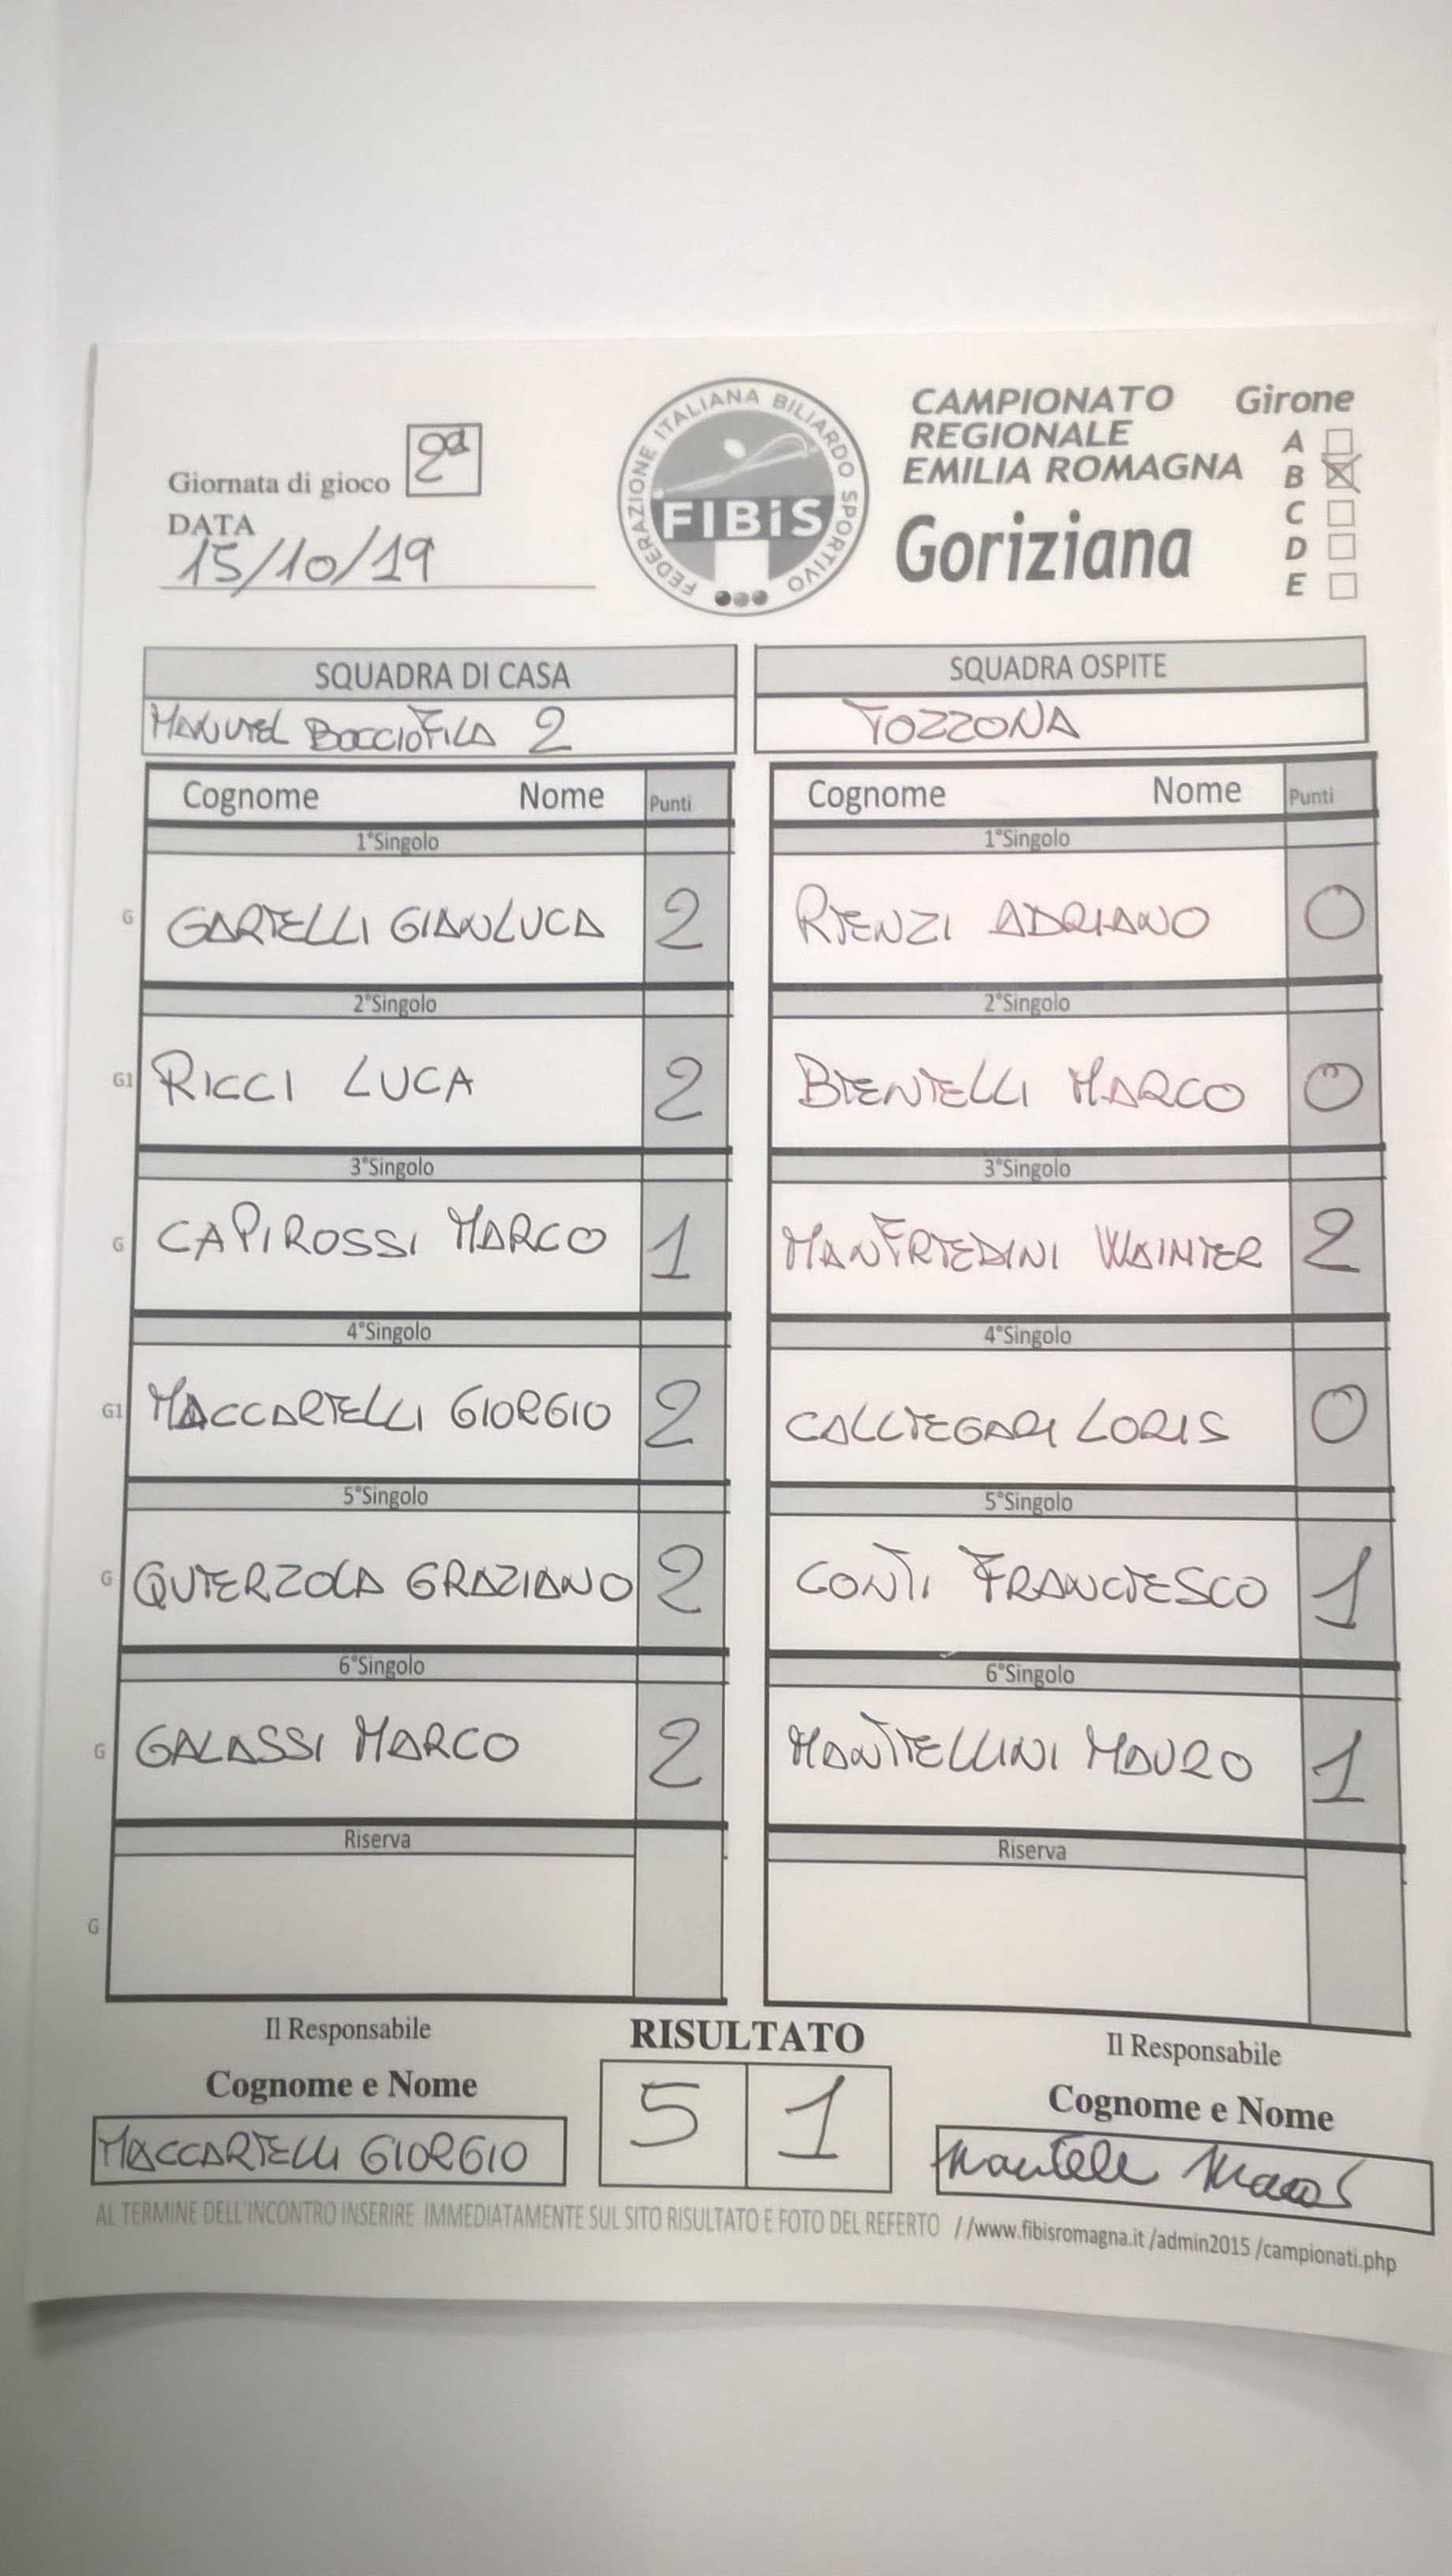 FEDERAZIONE ITALIANA BILIARDO SPORTIVO
FIBiS
CAMPIONATO
REGIONALE
EMILIA ROMAGNA
Goriziana
Girone
A
B
C
D
E
Giornata di gioco 2a
DATA
15/10/19
SQUADRA DI CASA SQUADRA OSPITE
MANUEL BOCCIOFILA 2 TOZZONA
Cognome Nome Punti Cognome Nome Punti
1°Singolo 1°Singolo
G GARELLI GIANLUCA 2 RENZI ADRIANO 0
2°Singolo 2°Singolo
G1 RICCI LUCA 2 BENELLI MARCO 0
3°Singolo 3°Singolo
G CAPIROSSI MARCO 1 MANFREDINI WAINER 2
4°Singolo 4°Singolo
G1 MACCARELLI GIORGIO 2 CALLEGARI LORIS 0
5°Singolo 5°Singolo
G QUERZOLA GRAZIANO 2 CONTI FRANCESCO 1
6°Singolo 6°Singolo
G GALASSI MARCO 2 MANTELLINI MAURO 1
Riserva Riserva
G
Il Responsabile RISULTATO Il Responsabile
Cognome e Nome 5 1 Cognome e Nome
MACCARELLI GIORGIO
AL TERMINE DELL'INCONTRO INSERIRE IMMEDIATAMENTE SUL SITO RISULTATO E FOTO DEL REFERTO //www.fibisromagna.it /admin2015 /campionati.php